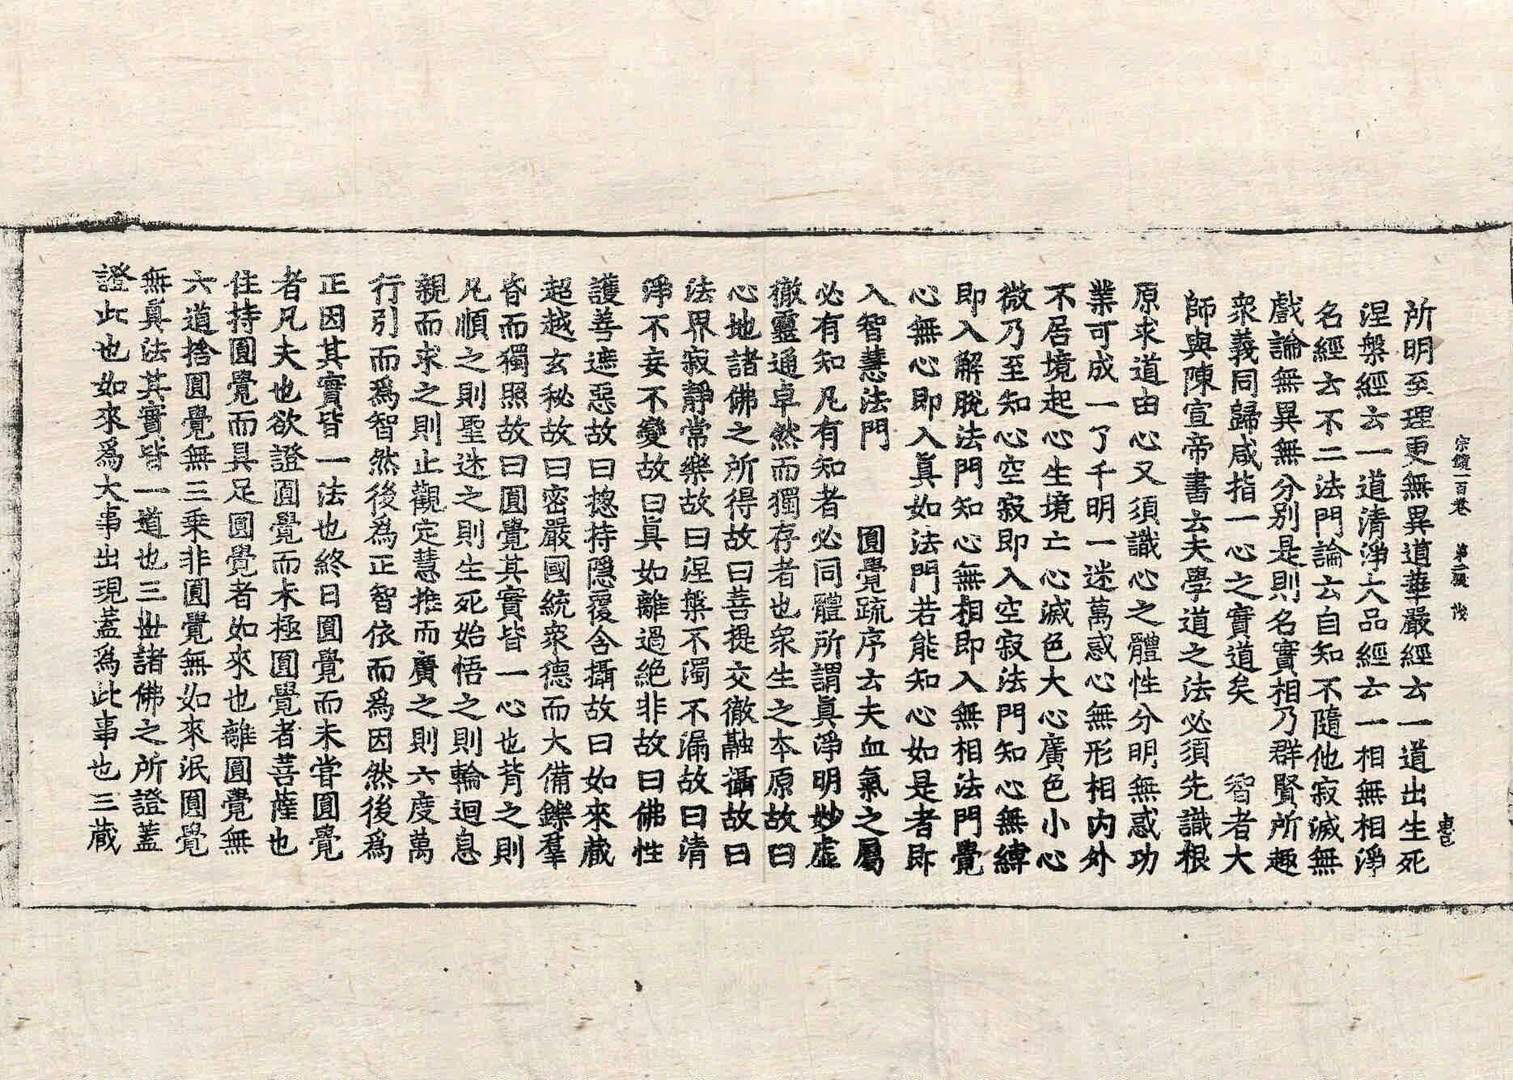 宗鏡一百卷　第二張　茂
所明至理更無異道華嚴經云一道出生死
涅槃經云一道清淨大品經云一相無相淨
名經云不二法門論云自知不隨他寂滅無
戲論無異無分別是則名實相乃群賢所趣
衆義同歸咸指一心之實道矣　智者大
師與陳宣帝書云夫學道之法必須先識根
原求道由心又須識心之體性分明無惑功
業可成一了千明一迷萬惑心無形相内外
不居境起心生境亡心滅色大心廣色小心
微乃至知心空寂即入空寂法門知心無縛
即入解脫法門知心無相即入無相法門覺
心無心即入眞如法門若能知心如是者即
入智慧法門　圓覺疏序云夫血氣之屬
必有知凡有知者必同體所謂眞淨明妙虛
徹靈通卓然而獨存者也衆生之本原故曰
心地諸佛之所得故曰菩提交徹融攝故曰
法界寂靜常樂故曰涅槃不濁不漏故曰清
淨不妄不變故曰眞如離過絶非故曰佛性
護善遮惡故曰揔持隱覆含攝故曰如來藏
超越玄秘故曰密嚴國統衆德而大備鑠羣
昏而獨照故曰圓覺其實皆一心也背之則
凡順之則聖迷之則生死始悟之則輪迴息
親而求之則止觀定慧推而廣之則六度萬
行引而爲智然後爲正智依而爲因然後爲
正因其實皆一法也終日圓覺而未甞圓覺
者凡夫也欲證圓覺而未極圓覺者菩薩也
住持圓覺而具足圓覺者如來也離圓覺無
六道捨圓覺無三乘非圓覺無如來泯圓覺
無眞法其實皆一道也三世諸佛之所證蓋
證此也如來爲大事出現蓋爲此事也三藏